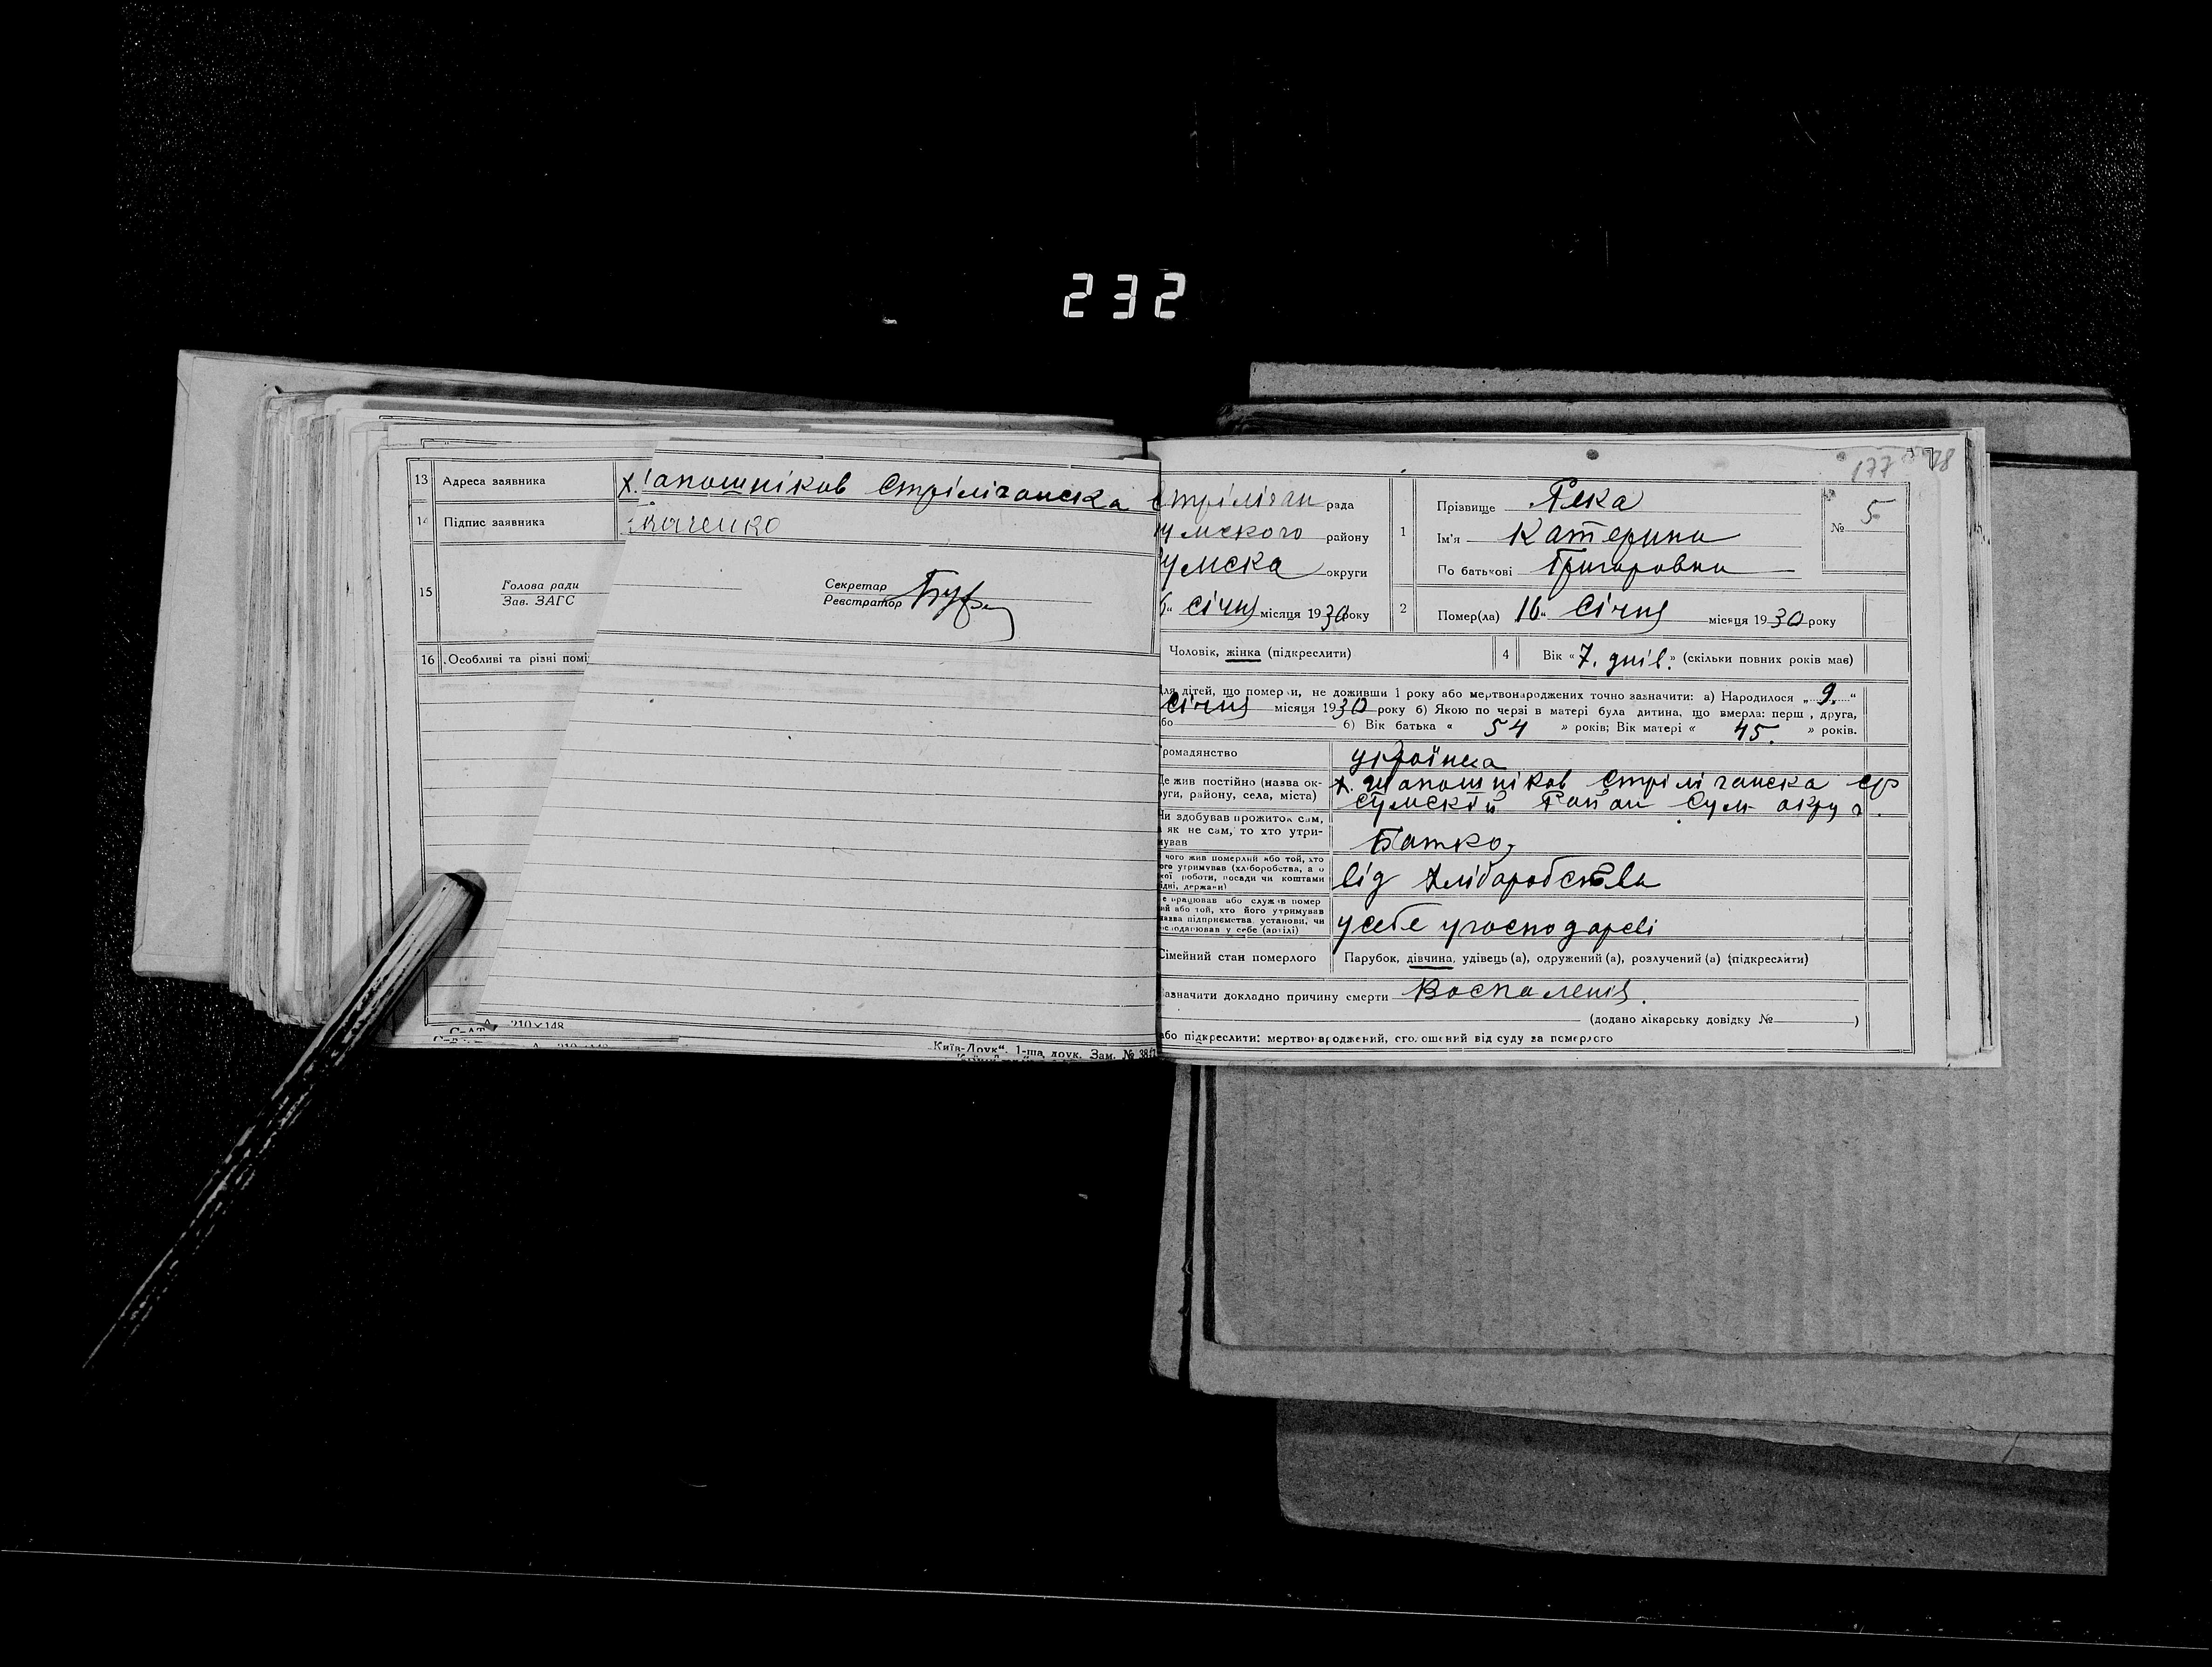 232
13 Адреса заявника х. апошніков Стрілічанска
14 Підпис заявника
15 Голова ради
Зав. ЗАГС
Секретар
Реєстратор
16 Особливі та різні помі
210×148
„Київ-Друк“ 1-ша друк. Зам. №
177
Стрілічан рада
умского району
Сумска округи
Січня місяця 1930 року
1 Прізвище
Ім'я Катерина
По батькові Григоровна
№ 5
2 Помер(ла) 16 „ Січня місяця 1930 року
Чоловік, жінка (підкреслити)
4 Вік « 7. днів. » (скільки повних років має)
Для дітей, що померли, не доживши 1 року або мертвонароджених точно зазначити: а) Народилося „ 9. “
Січня місяця 1930 року б) Якою по черзі в матері була дитина, що вмерла: перш , друга,
бо б) Вік батька « 54 » років; Вік матері « 45. » років.
ромадянство українка
Де жив постійно (назва ок-
руги, району, села, міста)
х. Шапошніков Стрілічанска ср
Сумский Район Сум округ.
Чи здобував прожиток сам,
а як не сам, то хто утри-
мував
Батко
чого жив померлий або той, хто
ого утримував (хліборобства, а о
кої роботи, посади чи коштами
ідні, держави)
від хліборобства
е працював або служив помер
ий або той, хто його утримував
назва підприємства, установи, чи
господарював у себе (артілі)
у себе у господарсві
Сімейний стан померлого Парубок, дівчина, удівець (а), одружений (а), розлучений (а) (підкреслити)
Зазначити докладно причину смерти Воспаленія.
(додано лікарську довідку № )
або підкреслити: мертвонароджений, оголошений від суду за померлого